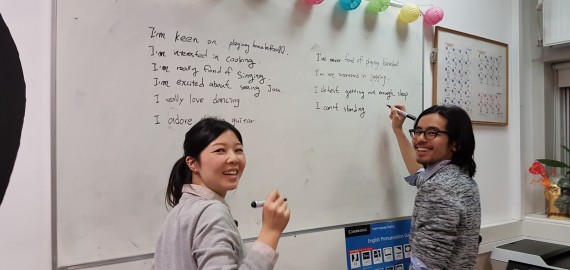 I'm keen on playing basketball.
I'm interested in cooking
I'm really fond of singing.
I'm excited about seeing Jon
I really love dancing
I adore guitar
I've never fond of playing baseball
I'm not interested in jogging.
I detest getting not enough sleep
I can't standing
CAMBRIDGE
English Pronunciation